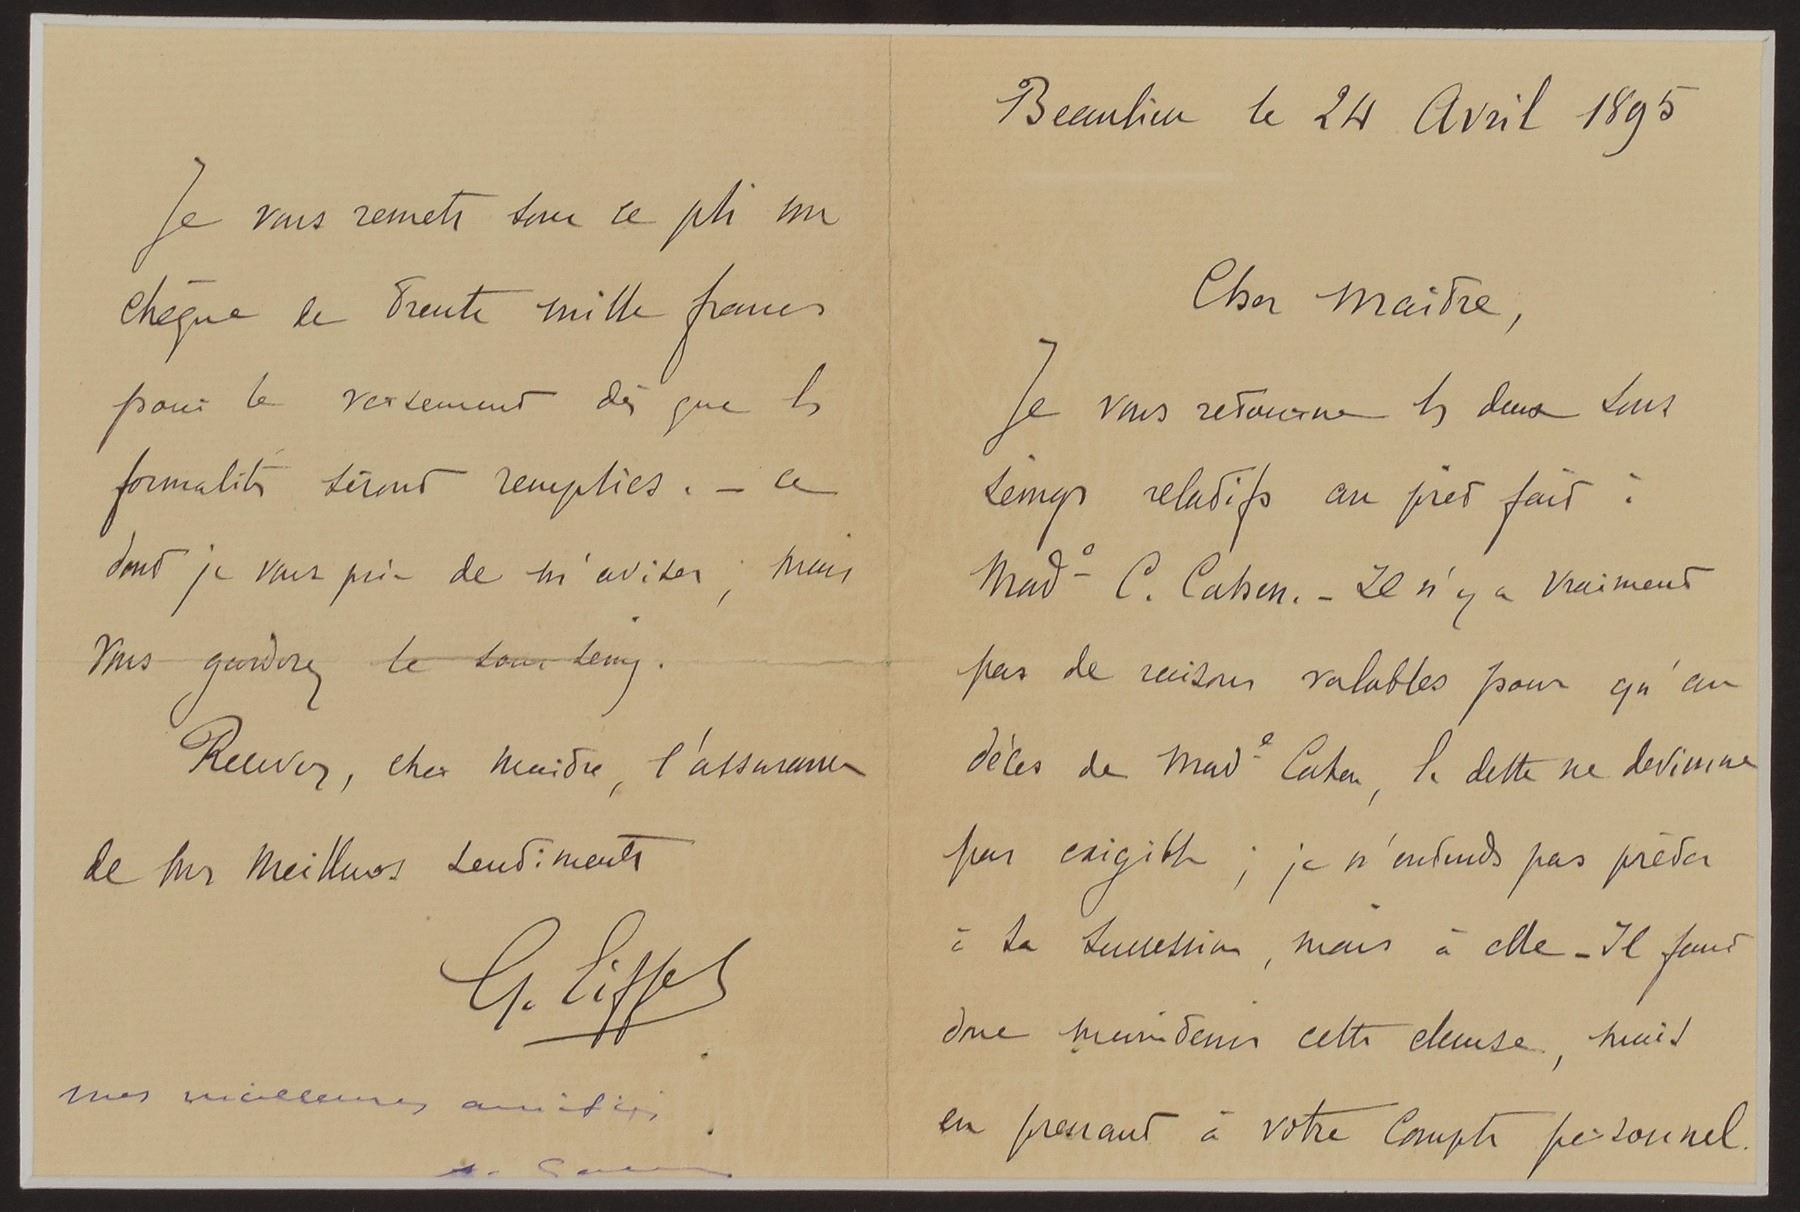 Beaulieu le 24 Avril 1895
Cher Maître,
Je vous retourne les deux sous
seings relatifs au prêt fait à
Made C. Cahen. - Il n'y a vraiment
pas de raisons valables pour qu'au
décès de Made Cahen, la dette ne devienne
pas exigible ; je n'entends pas prêter
à sa succession, mais à elle - Il faut
donc maintenir cette clause, mais
en prenant à votre Compte personnel.
Je vous remets sous ce pli un
chèque de trente mille francs
pour le versement dès que les
formalités seront remplies. - ce
dont je vous prie de m'aviser ; mais
vous garderez le sous seing.
Recevez, cher maître, l'assurance
de mes meilleurs sentiments
G. Eiffel
mes meilleures amitiés